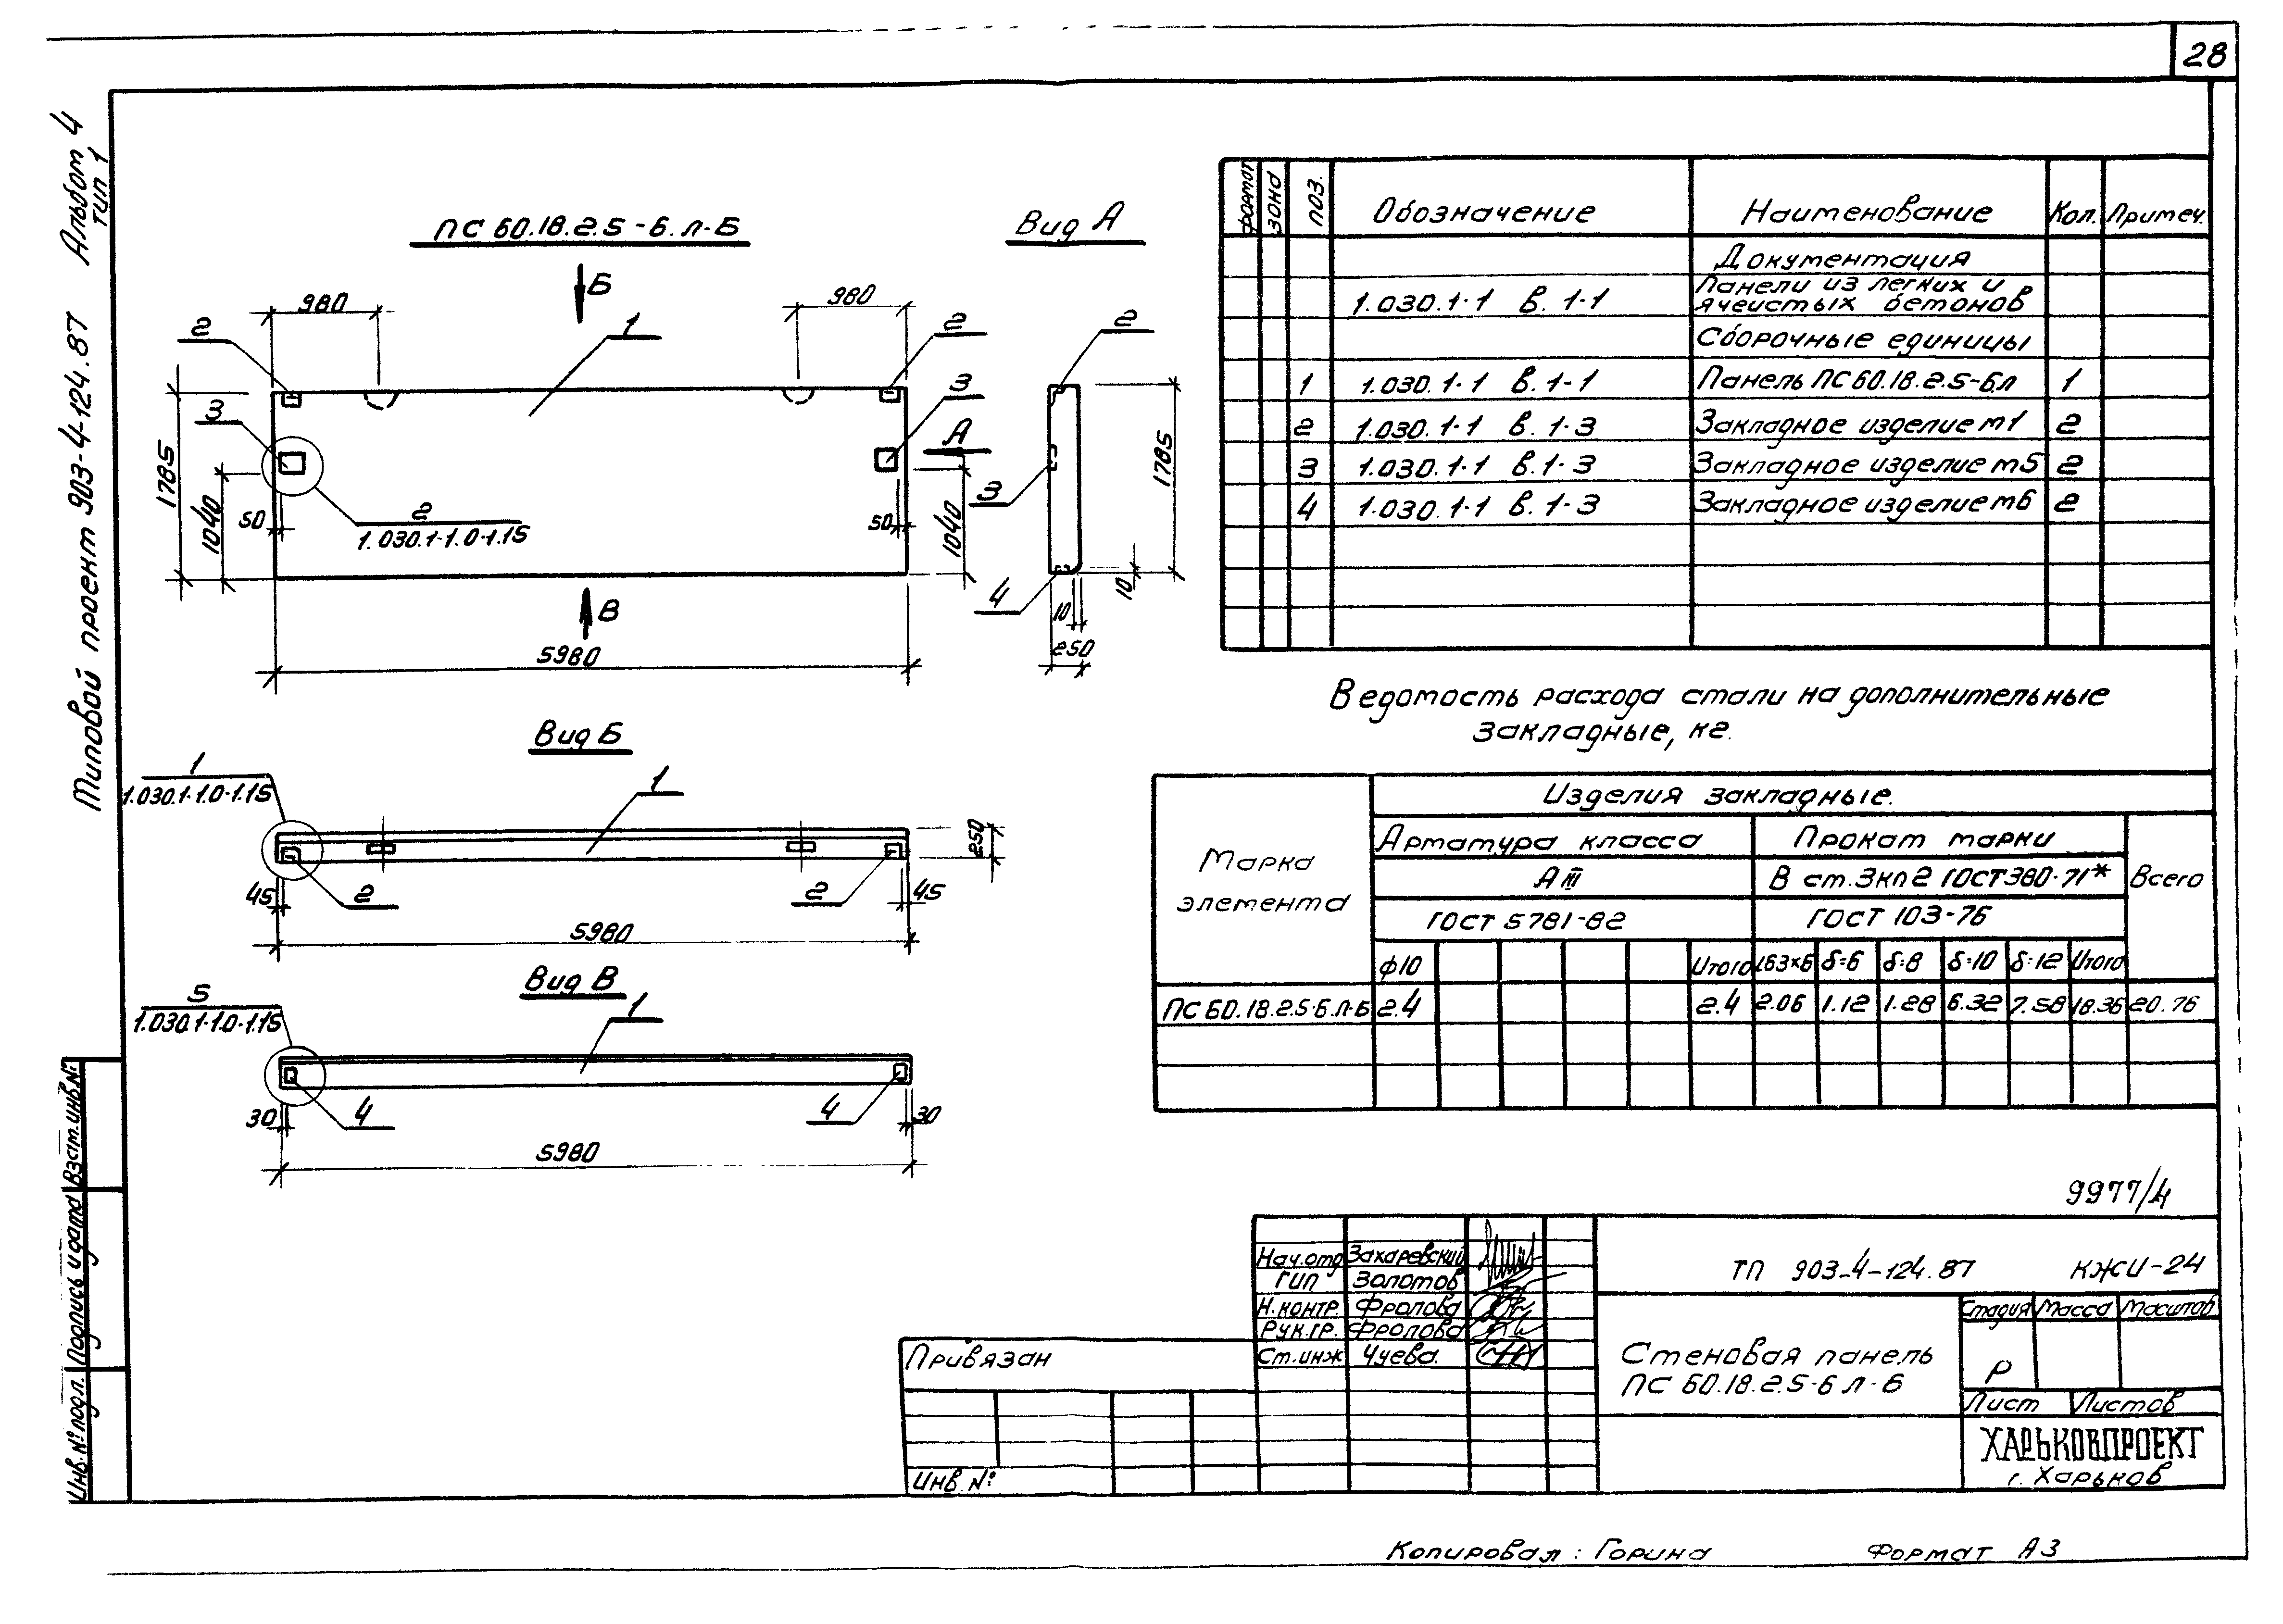 28
Альбом 4
тип 1
Типовой проект 903-4-124.87
ПС 60.18.2.5-6.Л-Б
Вид А
980
Б
980
2
1
2
2
3
3
А
1785
1040
50
2
1.030.1-1.0-1.15
50
1040
3
1785
4
10
10
250
В
5980
Вид Б
1
1.030.1-1.0-1.15
1
250
45
2
2
45
5980
Вид В
5
1.030.1-1.0-1.15
1
30
4
4
30
5980
Формат Зона Поз. Обозначение Наименование Кол. Примеч.
Документация
1.030.1-1 в. 1-1 Панели из легких и
ячеистых бетонов
Сборочные единицы
1 1.030.1-1 в. 1-1 Панель ПС60.18.2.5-6Л 1
2 1.030.1-1 в. 1-3 Закладное изделие м1 2
3 1.030.1-1 в. 1-3 Закладное изделие м5 2
4 1.030.1-1 в. 1-3 Закладное изделие м6 2
Ведомость расхода стали на дополнительные
закладные, кг.
Марка
элемента
Изделия закладные.
Арматура класса Прокат марки
А III В ст.3кп2 ГОСТ380-71* Всего
ГОСТ 5781-82 ГОСТ 103-76
ф10 Итого L63×6 δ=6 δ=8 δ=10 δ=12 Итого
ПС 60.18.2.5-6.Л-Б 2.4 2.4 2.06 1.12 1.28 6.32 7.58 18.36 20.76
9977/4
Нач.отд Захаревский
ГИП Золотов
Н.контр. Фролова
Рук.гр. Фролова
Ст.инж Чуева.
ТП 903-4-124.87 КЖИ-24
Стеновая панель
ПС 60.18.2.5-6 Л-Б
Стадия Масса Масштаб
Р
Лист Листов
ХАРЬКОВПРОЕКТ
г. Харьков
Привязан
Инв. №
Инв. № подл. Подпись и дата Взам. инв. №
Копировал: Горина Формат А3